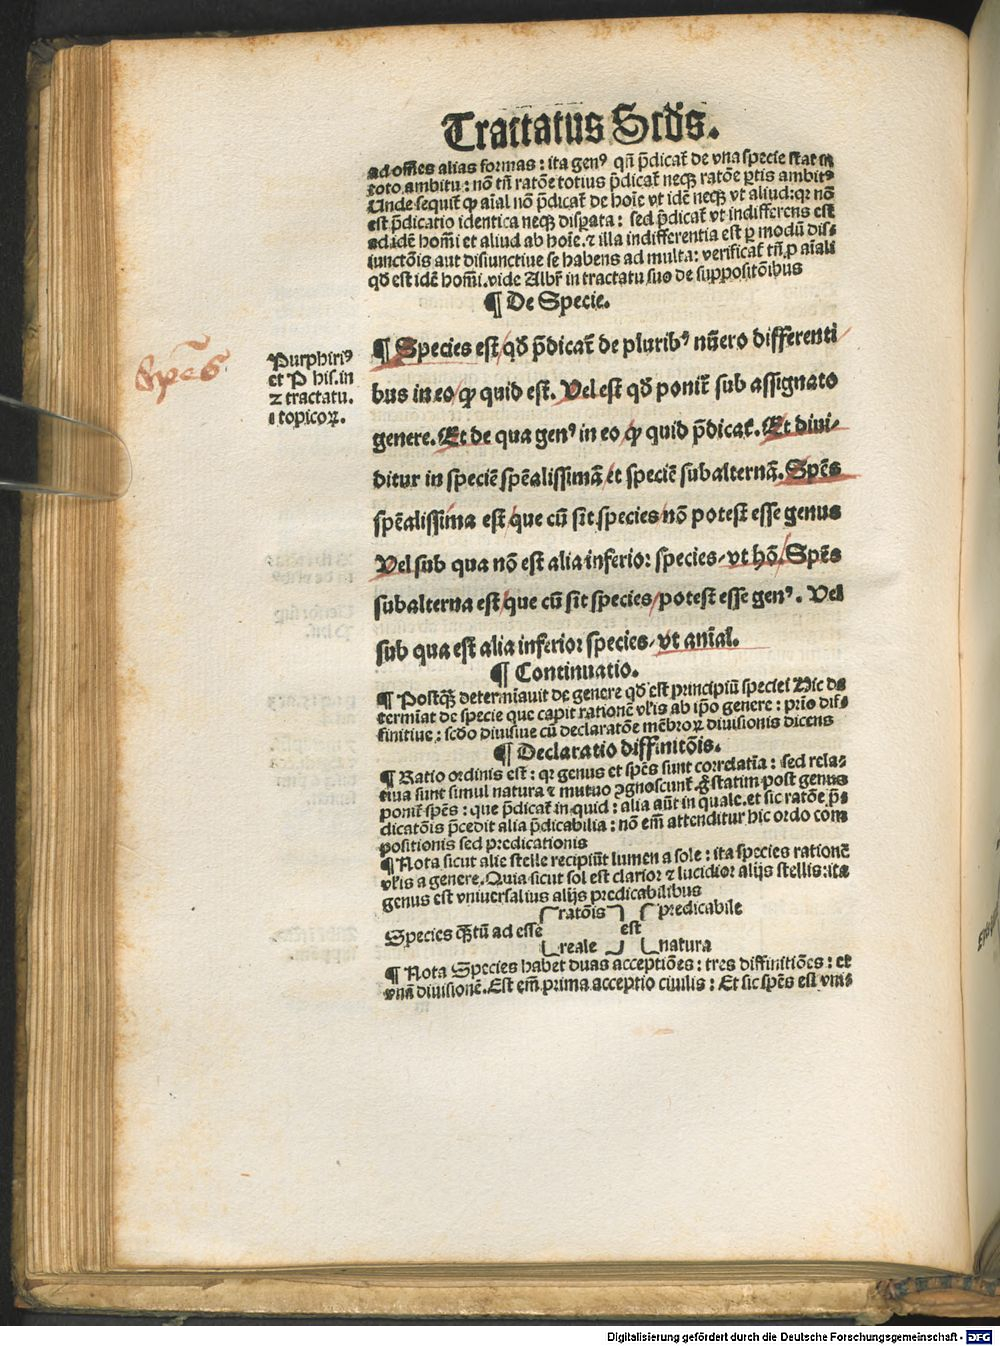 Tractatus Scd̄s.
ad oīnes alias formas: ita genꝰ qn̄ p̄dicat̄ de vna specie stat in
toto ambitu: nō tn̄ ratōe totius p̄dicat̄ neqꝫ ratōe ꝑtis ambitꝰ
Unde sequit̄ ꝙ aīal nō p̄dicat̄ de hoīe vt idē neqꝫ vt aliud: qꝛ nō
est p̄dicatio identica neqꝫ disꝑata: sed p̄dicat̄ vt indifferens est
ad idē homīi et aliud ab hoīe. ⁊ illa indifferentia est ꝑ modū dis⸗
iunctōis aut disiunctiue se habens ad multa: verificat̄ tn̄ ꝓ aīali
qd̄ est idē homīi. vide Albr̄ in tractatu suo de suppositōibus
¶ De Specie.
Spēs
Purphiriꝰ
et P his. in
2 tractatu.
i topicoꝝ.
¶ Species est/ qd̄ p̄dicat̄ de pluribꝰ nūero differenti/
bus in eo/ ꝙ quid est. Vel est qd̄ ponit̄ sub assignato
genere. Et de qua genꝰ in eo ꝙ quid p̄dicat̄. Et diui⸗
ditur in speciē spēalissimā/ et speciē subalternā. Spēs
spēalissima est/ que cū sit species/ nō potest esse genus
Vel sub qua nō est alia inferior species/ vt hō/ Spēs
subalterna est/ que cū sit species/ potest esse genꝰ. Vel
sub qua est alia inferior species/ vt anīal.
¶ Continuatio.
¶ Postqꝫ determīauit de genere qd̄ est principiū speciei Hic de
termīat de specie que capit rationē vl̄is ab ip̄o genere: prīo dif⸗
finitiue: scd̄o diuisiue cū declaratōe mēbroꝝ diuisionis dicens
¶ Declaratio diffinitōis.
¶ Ratio ordinis est: qꝛ genus et spēs sunt correlatīa: sed rela⸗
tiua sunt simul natura ⁊ mutuo ꝯgnoscunt̄. g̊ statim post genus
ponit̄ spēs: que p̄dicat̄ in quid: alia aūt in quale. et sic ratōe p̄⸗
dicatōis p̄cedit alia p̄dicabilia: nō em̄ attenditur hic ordo com
positionis sed predicationis
¶ Nota sicut alie stelle recipiūt lumen a sole: ita species rationē
vl̄is a genere. Quia sicut sol est clarior ⁊ lucidior alijs stellis: ita
genus est vniuersalius alijs predicabilibus
ratōis predicabile
Species qꝫtū ad esse est
reale natura
¶ Nota Species habet duas acceptiōes: tres diffinitiōes: et
vnā diuisionē. Est em̄ prima acceptio ciuilis: Et sic spēs est vni⸗
Digitalisierung gefördert durch die Deutsche Forschungsgemeinschaft - DFG